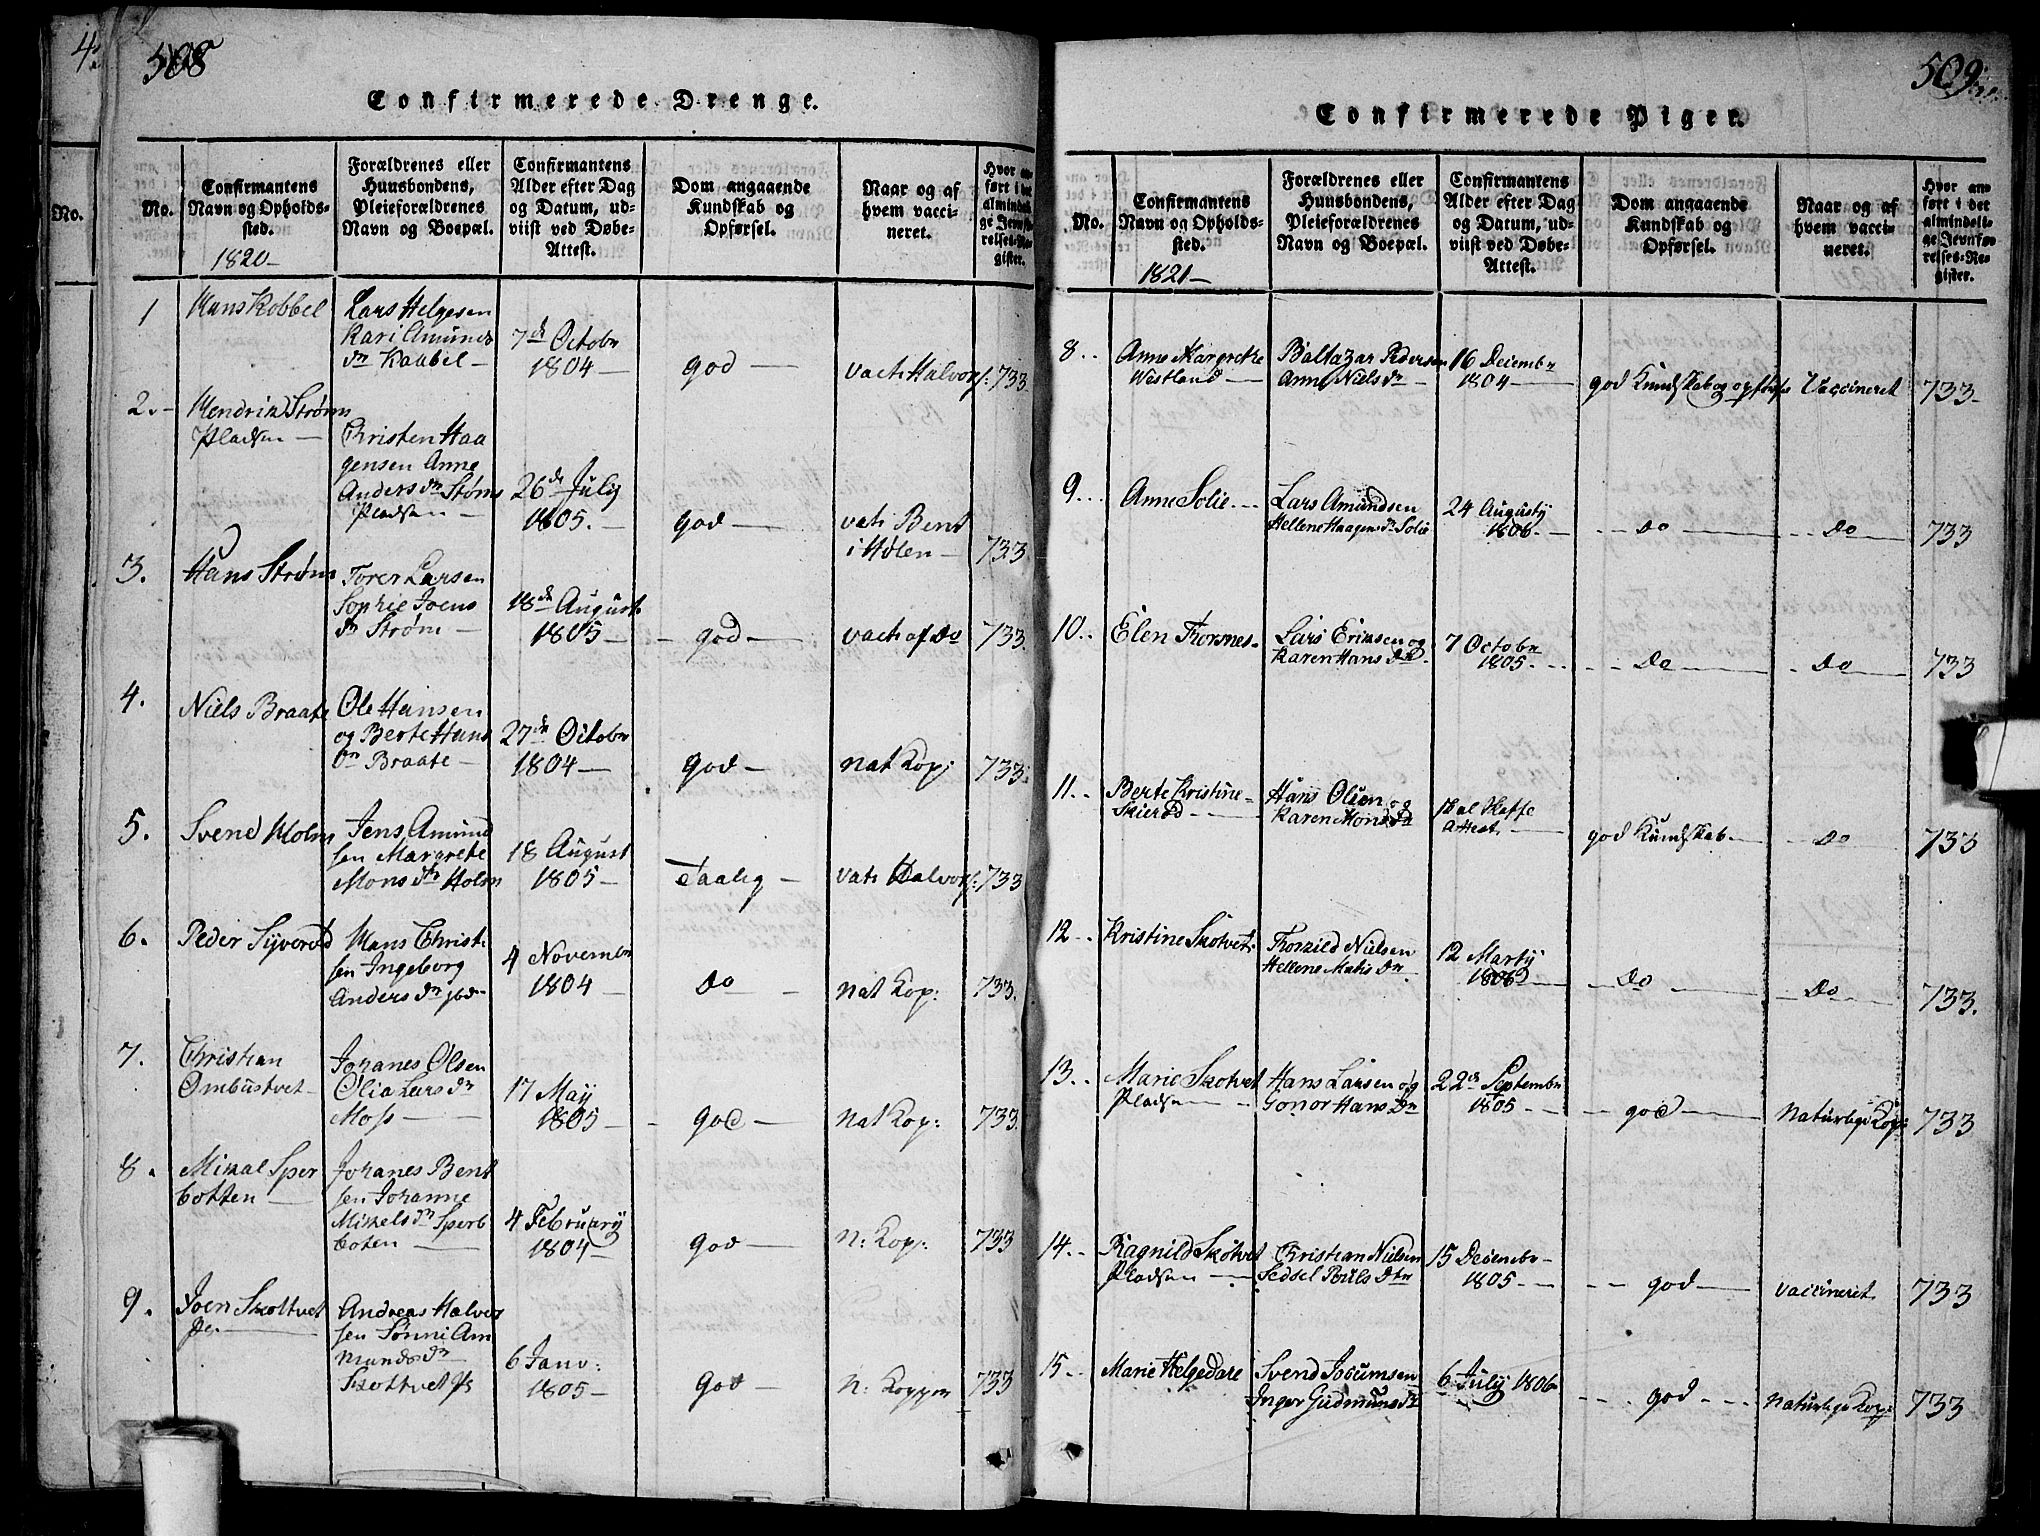 508
Confirmerede Drenge.
No.
Confirmantens Navn og Opholdssted.
Forældrenes eller Huusbondens, Pleieforældrenes Navn og Boepæl.
Confirmantens Alder efter Dag og Datum, udviist ved Døbe-Attest.
Dom angaaende Kundskab og Opførsel.
Naar og af hvem vaccineret.
Hvor anført i det almindelige Jevnførelses-Register.
1820
1
Hans Kobbel
Lars Helgesen
Kari Amunds
dn Kaabel
7de Octobr
1804
god
vact: Halvors:
733
2.
Hendrik Strøm
Pladsen
Christen Haa
gensen Anne
Anders dn Støms
Pladsen
26de July
1805.
god
vat: Bent
i Hølen
733
3.
Hans Strøm
Torer Larsen
Sophie Joens
dn Strøm
18de August
1805
god
vact: af do
733.
4.
Niels Braate
Ole Hansen
og Berte Hans
dn Braate
27de Octobr
1804
god
nat Kop:
733:
5.
Svend Holm
Jens Amund
sen Margrete
Mons dtr Holm
18 August
1805
Taalig
vat: Halvors:
733
6.
Peder Syverød
Hans Christ:
sen Ingeborg
Anders dn ibd
4 Novembr
1804
do
nat Kop:
733.
7.
Christian
Ombustvet
Johanes Olsen
Olia Lars dn
Moss
17 Maij
1805
god
nat Kop:
733.
8.
Mikkal Sper
botten
Johanes Bent
sen Johanne
Mikkels dn Sperb
boten
4 February
1804
god
n: Kop:
733
9.
Joen Skottvet
Pl.
Andreas Halvor
sen Sønni Am
munds dn
Skottvet Pl
6 Janv:
1805
god
n: Kopper
733
509
Confirmerede Piger.
No.
Confirmantens Navn og Opholdssted.
Forældrenes eller Huusbondens, Pleieforældrenes Navn og Boepæl.
Confirmantens Alder efter Dag og Datum, udviist ved Døbe-Attest.
Dom angaaende Kundskab og Opførsel.
Naar og af hvem vaccineret.
Hvor anført i det almindelige Jevnførelses-Register.
1821
8
Anne Margrethe
Westland
Baltazar Pedersen
Anne Niels dn
16 Decembr
1804
god Kundskab og opførsel
Vaccineret
733
9
Anne Solie
Lars Amundsen
Hellene Haagens dn Solie
24 Augusty
1806
do
do
733
10
Elen Thorsnes
Lars Eriksen og
Karen Hans dn
7 Octobr
1805
do
do
733
11
Berte Kristine
Skierød
Hans Olsen og
Karen Mons dn
skal skaffe
Attest
god Kundskab
do
733
12
Kristine Skotvet
Thorkild Nielsen
Hellene Matis dn
12 Marty
1806
do
do
733.
13
Marie Skotvet
Pladsen
Hans Larsen og
Gonor Hans dn
22de Septembr
1805
god
Naturlige Kop:
733
14
Ragnild Skotvet
Pladsen
Christian Nielsen
Sedsel Pouls dtr
15 Decembr
1805
god
vaccineret
733
15
Marie Helgedare
Svend Jocumsen
Inger Gudmuns dn
6 July 1806
god
Naturlige Kop:
733